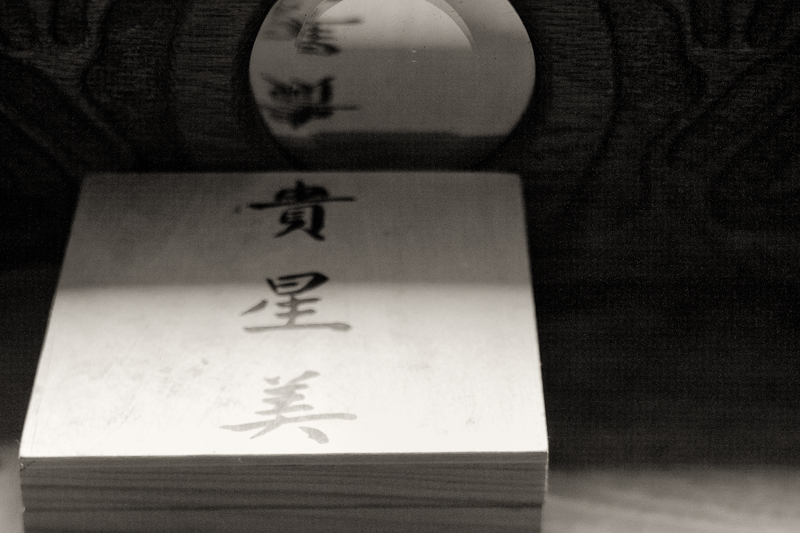 貴星美